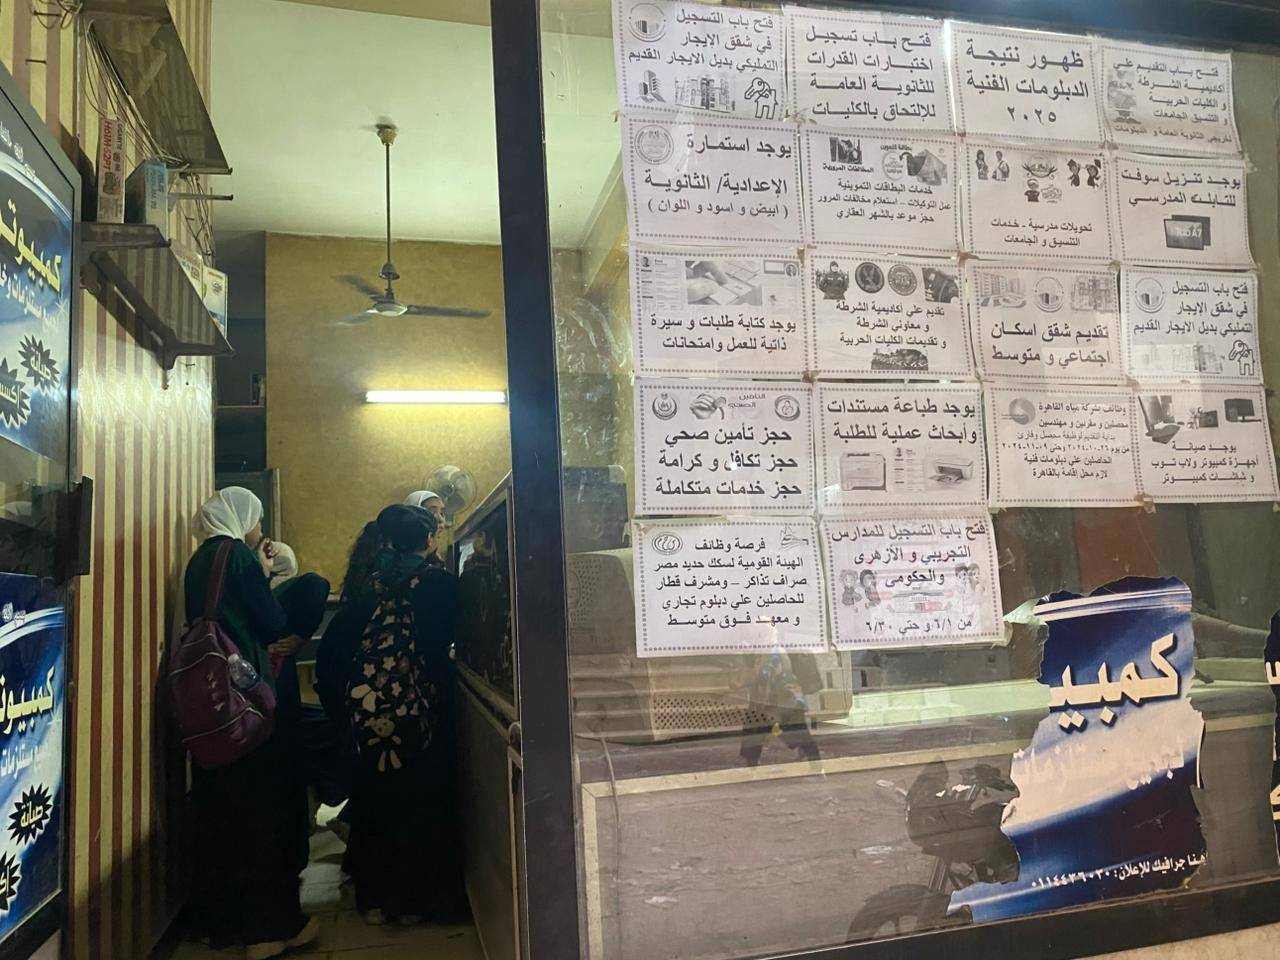 فتح باب التسجيل
في شقق الإيجار
التمليكي بديل الايجار القديم
فتح باب تسجيل
اختبارات القدرات
للثانوية العامة
للإلتحاق بالكليات
ظهور نتيجة
الدبلومات الفنية
٢٠٢٥
فتح باب التقديم علي
أكاديمية الشرطة
و الكليات الحربية
و التنسيق الجامعات
لخريجي الثانوية العامة و الدبلومات
يوجد استمارة
الإعدادية/ الثانوية
( ابيض و اسود و اللوان )
بطاقة التموين
المخالفات المرورية
خدمات البطاقات التموينية
عمل التوكيلات – استعلام مخالفات المرور
حجز موعد بالشهر العقاري
تحويلات مدرسية - خدمات
التنسيق و الجامعات
يوجد تنزيل سوفت
للتابلت المدرسي
يوجد كتابة طلبات و سيرة
ذاتية للعمل وامتحانات
تقديم علي أكاديمية الشرطة
و معاوني الشرطة
و تقديمات الكليات الحربية
تقديم شقق اسكان
اجتماعي و متوسط
فتح باب التسجيل
في شقق الإيجار
التمليكي بديل الايجار القديم
التأمين
الصحي
حجز تأمين صحي
حجز تكافل و كرامة
حجز خدمات متكاملة
يوجد طباعة مستندات
وأبحاث عملية للطلبة
وظائف بشركة مياه القاهرة
محصلين و مقرنين و مهندسين
بداية التقديم لوظيفة محصل وقارئ
من يوم ٢١-١٠-٢٠٢٤ وحتي ٠٩-١١-٢٠٢٤
الحاصلين علي دبلومات فنية
لازم محل إقامة بالقاهرة
يوجد صيانة
أجهزة كمبيوتر ولاب توب
و شاشات كمبيوتر
فرصة وظائف
الهيئة القومية لسكك حديد مصر
صراف تذاكر – ومشرف قطار
للحاصلين علي دبلوم تجاري
و معهد فوق متوسط
فتح باب التسجيل للمدارس
التجريبي و الأزهرى
والحكومى
من ٦/١ و حتي ٦/٣٠
كمبيو
لجميع مستلزمات
هنا جرافيك للإعلان: ٠١١٤٤٣٦٠٣٠
كمبيوتر
صيانة
كمبيوتر
صيانة